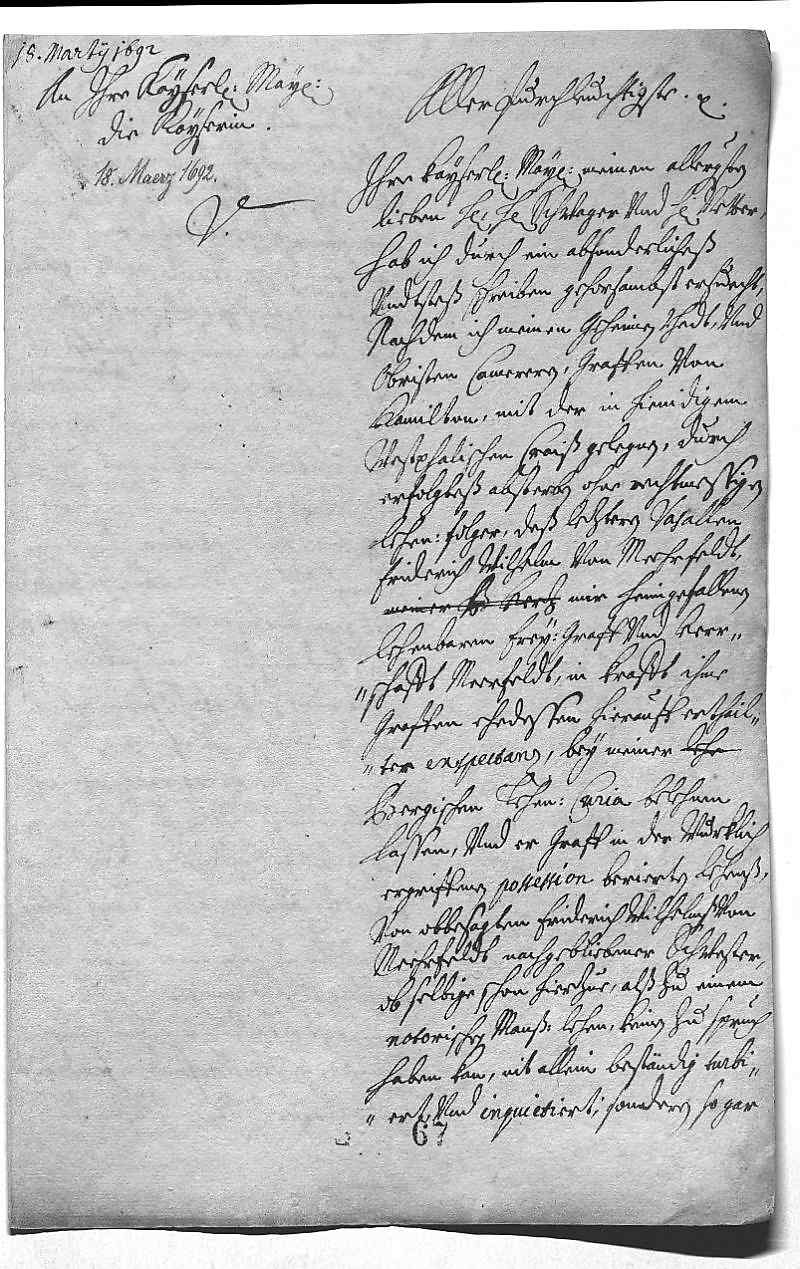 18. Martÿ 1692
An Ihre Kaÿserl: Maÿ:
die Kaÿserin.
18. Maerz 1692.
Allerdurchleuchtigste. p.
Ihre kaÿserl: Maÿ: meinen allergsten
lieben H: H: Schwager Und H: Vetter,
hab ich durch ein absonderliches
Undtstes schreiben gehorsambst ersuecht,
Nachdem ich meinen Geheimen Rhat, Und
Obristen Camerern, Graffen Von
Hamilton, mit der in hienidigem
Westphalischen Craiß gelegen, durch
erfolgtes absterben ohne rechtmessigen
lehen: folger, deß letztern Vasallen
Friderich Wilhelm Von Mehrfeldt,
meiner mir heimgefallenen
lehenbaren freÿ: Graff Und herr„
„schafft Meerfeldt, in krafft ihme
Graffen ehedessen hierauff erthail„
„ter expectanz, beÿ meiner lehe
Bergischen Lehen: Curia belehnen
lassen, Und er Graff in der Würklich
ergriffenen possession berierten lehens,
Von obbesagten Friderich Wilhelms Von
Mehrfeldt nachgebliebener Schwester,
ob selbige schon hierzue, alß zu einem
notorischen Manß: lehen, keinen zuspruch
haben kan, nit allein beständig turbi„
„ert, Und inquietiert, sondern so gar
67